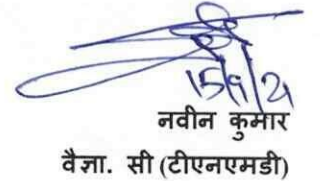 15/9/21
नवीन कुमार
वैज्ञा. सी (टीएनएमडी)